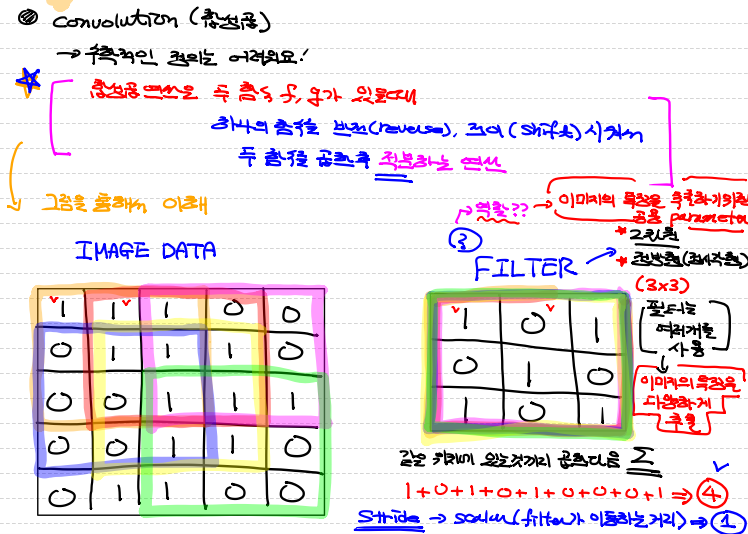 convolution (합성곱)
→ 수학적인 정의는 어려워요!
합성곱 연산은 두 함수 f, g가 있을때
하나의 함수를 반전(reverse), 전이(shift) 시켜서
두 함수를 곱한후 적분하는 연산
그림을 통해서 이해
역할?? → 이미지의 특징을 추출하기위한
공용 parameter
IMAGE DATA
③
FILTER
* 2차원
* 정방형(정사각형)
(3x3)
1 1 1 0 0
0 1 1 1 0
0 0 1 1 1
0 0 1 1 0
0 1 1 0 0
1 0 1
0 1 0
1 0 1
필터는
여러개를
사용
이미지의 특징을
다양하게
추출
같은 위치에 있는것끼리 곱한다음 Σ
1+0+1+0+1+0+0+0+1 ⇒ ④
Stride → scalar(filter가 이동하는 거리) ⇒ ①